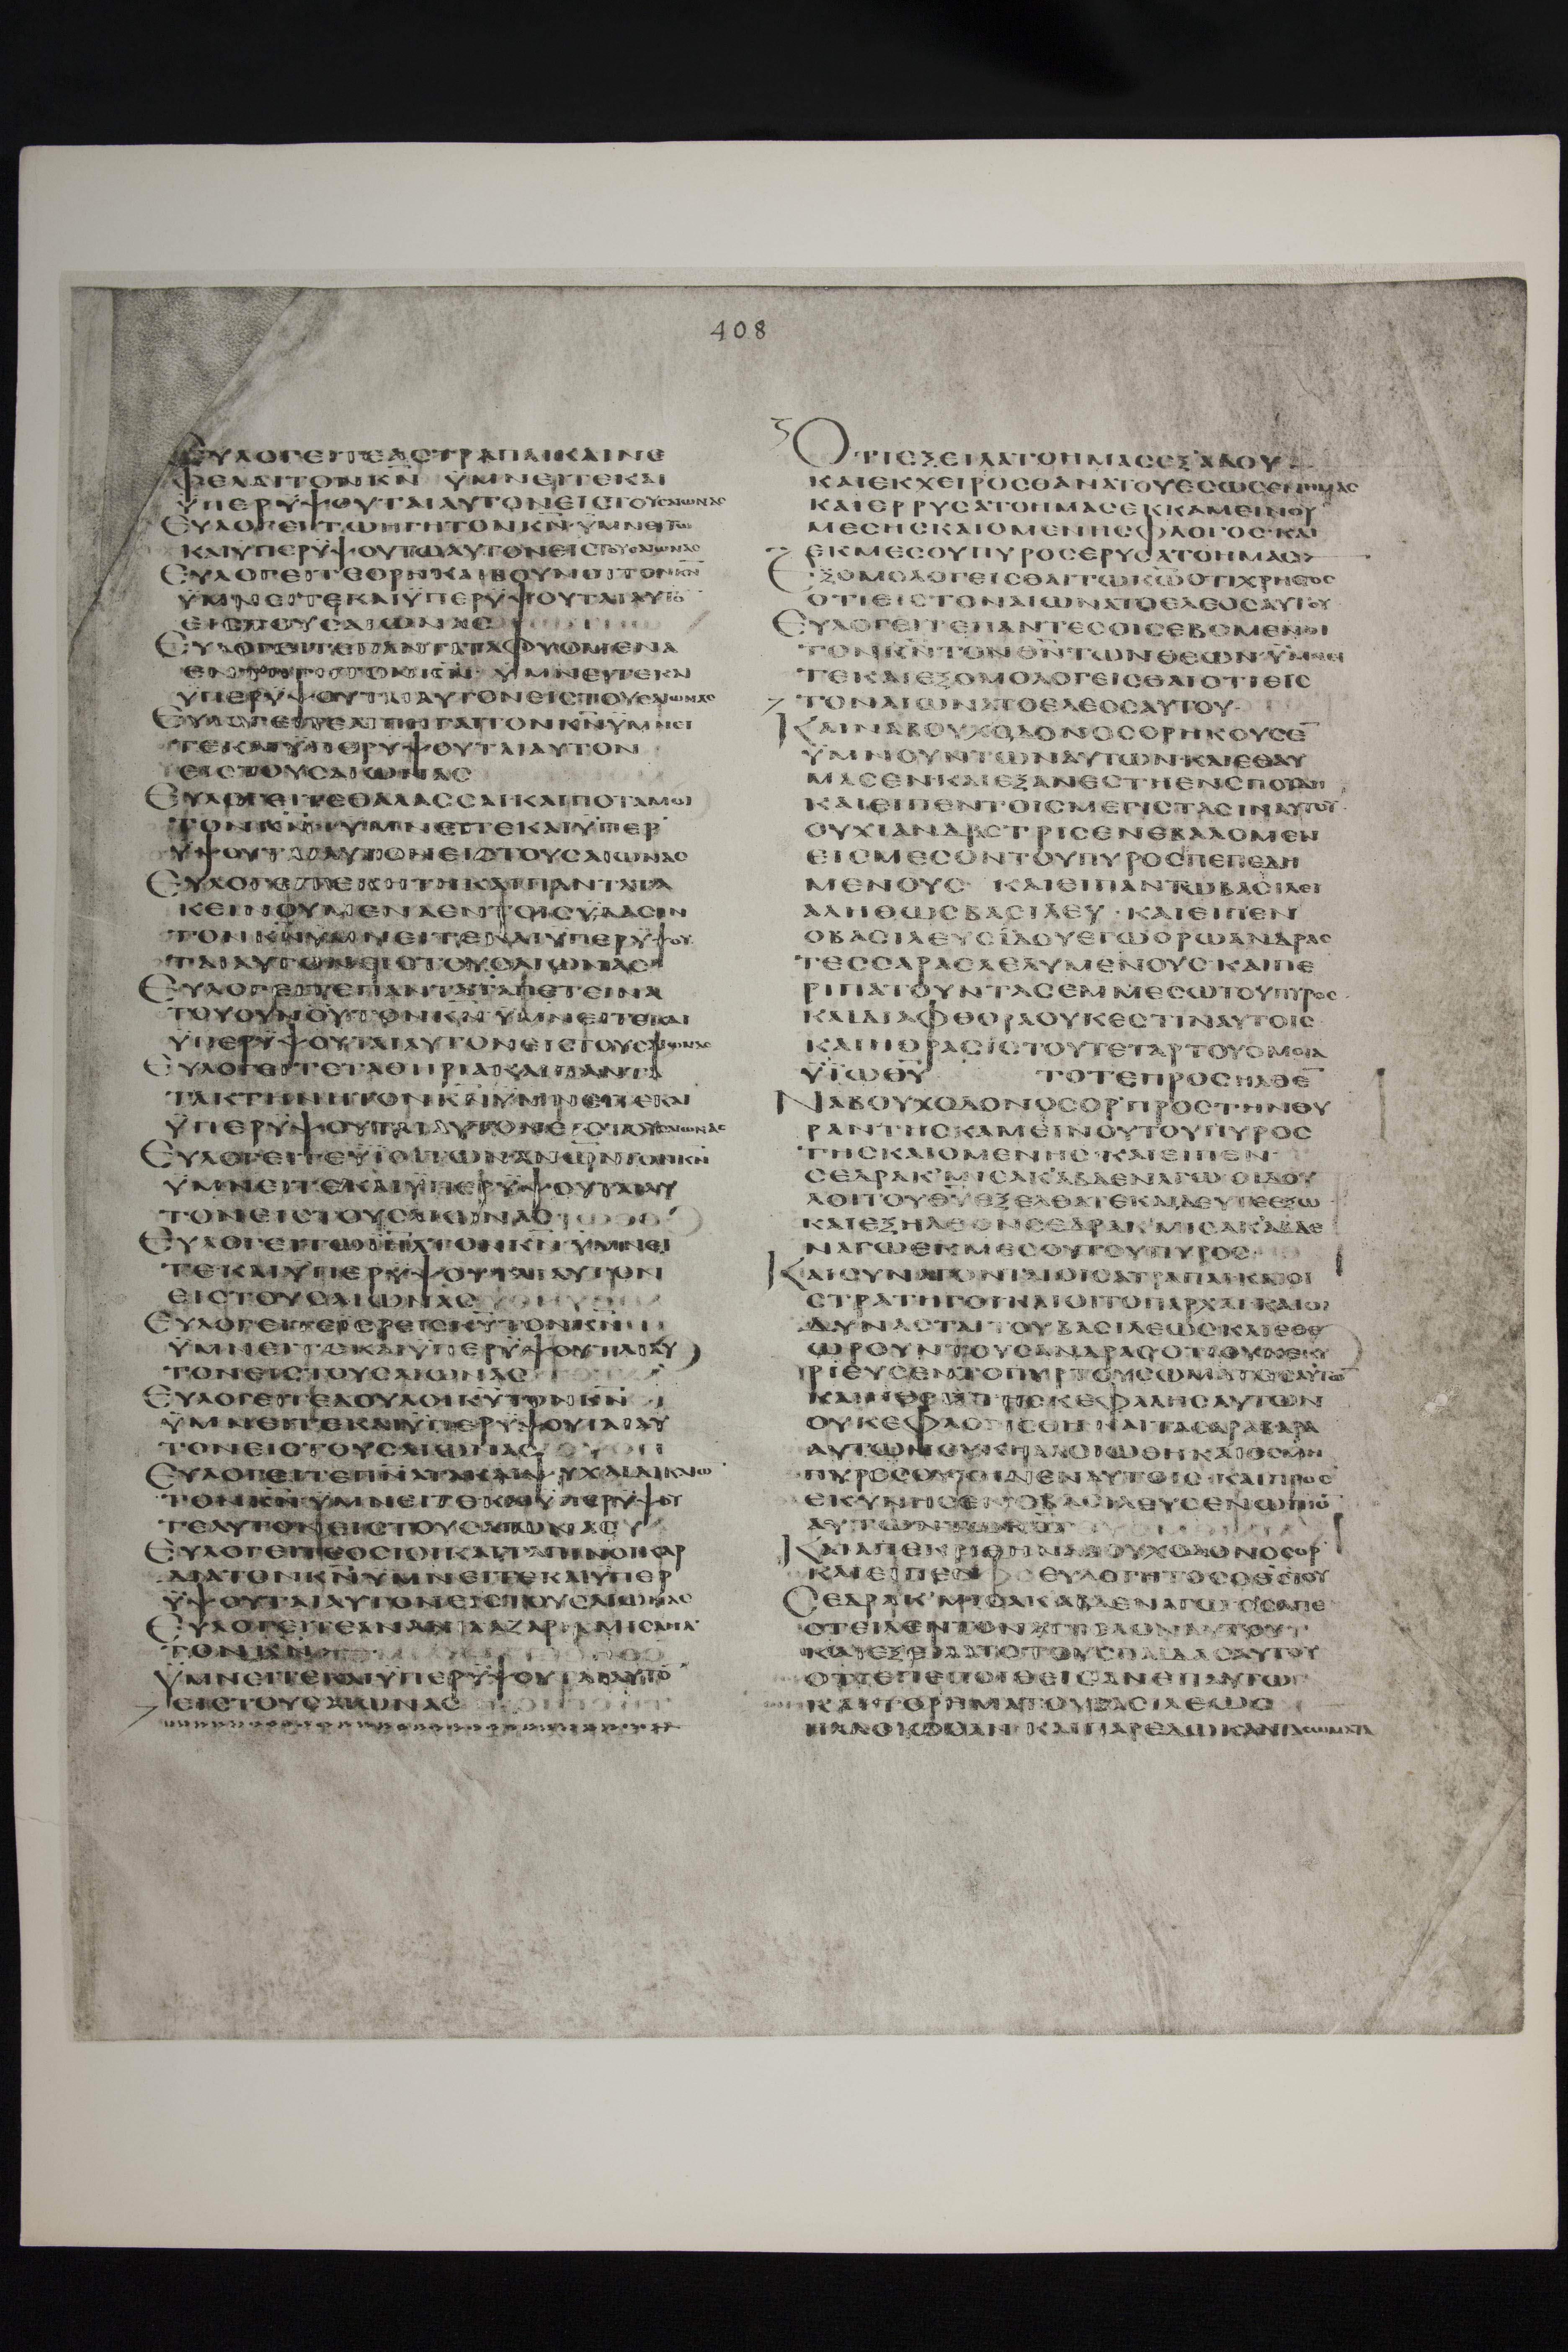 408
ΕΥΛΟΓΕΙΤΕΑΣΤΡΑΠΑΙΚΑΙΝΕ
ΦΕΛΑΙΤΟΝΚΝ ΥΜΝΕΙΤΕΚΑΙ
ΫΠΕΡΥΨΟΥΤΑΙΑΥΤΟΝΕΙΣΤΟΥΣΑΙΩΝΑΣ
ΕΥΛΟΓΕΙΤΩΗΓΗΤΟΝΚΝ·ΥΜΝΕΙΤΩ
ΚΑΙΥΠΕΡΥΨΟΥΤΩΑΥΤΟΝΕΙΣΤΟΥΣΑΙΩΝΑΣ
ΕΥΛΟΓΕΙΤΕΟΡΗΚΑΙΒΟΥΝΟΙΤΟΝΚΝ
ΥΜΝΕΙΤΕΚΑΙΫΠΕΡΥΨΟΥΤΑΙΑΥΤΟ
ΕΙΣΤΟΥΣΑΙΩΝΑΣ
ΕΥΛΟΓΕΙΤΕΠΑΝΤΑΤΑΦΥΟΜΕΝΑ
ΥΜΝΕΙΤΕΚΑΙ
ΥΠΕΡΥΨΟΥΤΑΙΑΥΤΟΝΕΙΣΤΟΥΣΑΙΩΝΑΣ
ΕΥΛΟΓΕΙΤΕΑΙΠΗΓΑΙΤΟΝΚΝΫΜΝΕΙ
ΤΕΚΑΙΥΠΕΡΥΨΟΥΤΑΙΑΥΤΟΝ
ΕΙΣΤΟΥΣΑΙΩΝΑΣ
ΕΥΛΟΓΕΙΤΕΘΑΛΑΣΣΑΙΚΑΙΠΟΤΑΜΟΙ
ΤΟΝΚΝΥΜΝΕΙΤΕΚΑΙΫΠΕΡ
ΫΨΟΥΤΑΙΑΥΤΟΝΕΙΣΤΟΥΣΑΙΩΝΑΣ
ΕΥΛΟΓΕΙΤΕΚΗΤΗΚΑΙΠΑΝΤΑΤΑ
ΚΕΙΝΟΥΜΕΝΑΕΝΤΟΙΣΥΔΑΣΙΝ
ΤΟΝΚΝΥΜΝΕΙΤΕΚΑΙΥΠΕΡΥΨΟΥ
ΤΑΙΑΥΤΟΝΕΙΣΤΟΥΣΑΙΩΝΑΣ
ΕΥΛΟΓΕΙΤΕΠΑΝΤΑΤΑΠΕΤΕΙΝΑ
ΤΟΥΟΥΝΟΥΤΟΝΚΝΥΜΝΕΙΤΕΚΑΙ
ΫΠΕΡΥΨΟΥΤΑΙΑΥΤΟΝΕΙΣΤΟΥΣΑΙΩΝΑΣ
ΕΥΛΟΓΕΙΤΕΤΑΘΗΡΙΑΚΑΙΠΑΝΤΑ
ΤΑΚΤΗΝΗΤΟΝΚΝΥΜΝΕΙΤΕΚΑΙ
ΫΠΕΡΥΨΟΥΤΑΙΑΥΤΟΝΕΙΣΤΟΥΣΑΙΩΝΑΣ
ΕΥΛΟΓΕΙΤΕΥΙΟΙΤΩΝΑΝΩΝΤΟΝΚΝ
ΫΜΝΕΙΤΕΚΑΙΥΠΕΡΥΨΟΥΤΑΙΑΥ
ΤΟΝΕΙΣΤΟΥΣΑΙΩΝΑΣ
ΕΥΛΟΓΕΙΤΩΙΗΛΤΟΝΚΝΥΜΝΕΙ
ΤΕΚΑΙΥΠΕΡΥΨΟΥΤΑΙΑΥΤΟΝ
ΕΙΣΤΟΥΣΑΙΩΝΑΣ
ΕΥΛΟΓΕΙΤΕΙΕΡΕΙΣΚΥΤΟΝΚΝ
ΫΜΝΕΙΤΕΚΑΙΫΠΕΡΥΨΟΥΤΑΙΑΥ
ΤΟΝΕΙΣΤΟΥΣΑΙΩΝΑΣ
ΕΥΛΟΓΕΙΤΕΔΟΥΛΟΙΚΥΤΟΝΚΝ
ΫΜΝΕΙΤΕΚΑΙΥΠΕΡΥΨΟΥΤΑΙΑΥ
ΤΟΝΕΙΣΤΟΥΣΑΙΩΝΑΣ
ΕΥΛΟΓΕΙΤΕΠΝΑΤΑΚΑΙΨΥΧΑΙΔΙΚΑΙΩ
ΤΟΝΚΝΥΜΝΕΙΤΕΚΑΙΥΠΕΡΥΨΟΥ
ΤΕΑΥΤΟΝΕΙΣΤΟΥΣΑΙΩΝΑΣ
ΕΥΛΟΓΕΙΤΕΟΣΙΟΙΚΑΙΤΑΠΙΝΟΙΚΑΡ
ΔΙΑΤΟΝΚΝΥΜΝΕΙΤΕΚΑΙΥΠΕΡ
ΫΨΟΥΤΑΙΑΥΤΟΝΕΙΣΤΟΥΣΑΙΩΝΑΣ
ΕΥΛΟΓΕΙΤΕΑΝΑΝΙΑΑΖΑΡΙΑΜΙΣΑΗΛ
ΤΟΝΚΝ
ΫΜΝΕΙΤΕΚΑΙΥΠΕΡΥΨΟΥΤΑΙΑΥΤΟ
ΕΙΣΤΟΥΣΑΙΩΝΑΣ
ΟΤΙΕΞΕΙΛΑΤΟΗΜΑΣΕΞΑΔΟΥ
ΚΑΙΕΚΧΕΙΡΟΣΘΑΝΑΤΟΥΕΣΩΣΕΝΗΜΑΣ
ΚΑΙΕΡΡΥΣΑΤΟΗΜΑΣΕΚΚΑΜΕΙΝΟΥ
ΜΕΣΗΣΚΑΙΟΜΕΝΗΣΦΛΟΓΟΣ·ΚΑΙ
ΕΚΜΕΣΟΥΠΥΡΟΣΕΡΥΣΑΤΟΗΜΑΣ
ΕΞΟΜΟΛΟΓΕΙΣΘΑΙΤΩΚΩΟΤΙΧΡΗΣΤΟΣ
ΟΤΙΕΙΣΤΟΝΑΙΩΝΑΤΟΕΛΕΟΣΑΥΤΟΥ
ΕΥΛΟΓΕΙΤΕΠΑΝΤΕΣΟΙΣΕΒΟΜΕΝΟΙ
ΤΟΝΚΝΤΟΝΘΝΤΩΝΘΕΩΝ·ΫΜΝΕΙ
ΤΕΚΑΙΕΞΟΜΟΛΟΓΕΙΣΘΑΙΟΤΙΕΙΣ
ΤΟΝΑΙΩΝΑΤΟΕΛΕΟΣΑΥΤΟΥ·
ΚΑΙΝΑΒΟΥΧΟΔΟΝΟΣΟΡΗΚΟΥΣΕ
ΫΜΝΟΥΝΤΩΝΑΥΤΩΝ·ΚΑΙΕΘΑΥ
ΜΑΣΕΝ·ΚΑΙΕΞΑΝΕΣΤΗΕΝΣΠΟΥΔΗ
ΚΑΙΕΙΠΕΝΤΟΙΣΜΕΓΙΣΤΑΣΙΝΑΥΤΟΥ
ΟΥΧΙΑΝΔΡΑΣΤΡΙΣΕΝΕΒΑΛΟΜΕΝ
ΕΙΣΜΕΣΟΝΤΟΥΠΥΡΟΣΠΕΠΕΔΗ
ΜΕΝΟΥΣ ΚΑΙΕΙΠΑΝΤΩΒΑΣΙΛΕΙ
ΑΛΗΘΩΣΒΑΣΙΛΕΥ·ΚΑΙΕΙΠΕΝ
ΟΒΑΣΙΛΕΥΣΪΔΟΥΕΓΩΟΡΩΑΝΔΡΑΣ
ΤΕΣΣΑΡΑΣΛΕΛΥΜΕΝΟΥΣ·ΚΑΙΠΕ
ΡΙΠΑΤΟΥΝΤΑΣΕΜΜΕΣΩΤΟΥΠΥΡΟΣ
ΚΑΙΔΙΑΦΘΟΡΑΟΥΚΕΣΤΙΝΑΥΤΟΙΣ
ΚΑΙΗΟΡΑΣΙΣΤΟΥΤΕΤΑΡΤΟΥΟΜΟΙΑ
ΥΪΩΘΥ ΤΟΤΕΠΡΟΣΗΛΘΕ
ΝΑΒΟΥΧΟΔΟΝΟΣΟΡΠΡΟΣΤΗΝΘΥ
ΡΑΝΤΗΣΚΑΜΕΙΝΟΥΤΟΥΠΥΡΟΣ
ΤΗΣΚΑΙΟΜΕΝΗΣ·ΚΑΙΕΙΠΕΝ·
ΣΕΔΡΑΚΜΙΣΑΚΑΒΔΕΝΑΓΩΟΙΔΟΥ
ΛΟΙΤΟΥΘΥΕΞΕΛΘΑΤΕΚΑΙΔΕΥΤΕΕΞΩ
ΚΑΙΕΞΗΛΘΟΝΣΕΔΡΑΚΜΙΣΑΚΑΒΔΕ
ΝΑΓΩΕΚΜΕΣΟΥΤΟΥΠΥΡΟΣ
ΚΑΙΣΥΝΑΓΟΝΤΑΙΟΙΣΑΤΡΑΠΑΙ·ΚΑΙΟΙ
ΣΤΡΑΤΗΓΟΙΚΑΙΟΙΤΟΠΑΡΧΑΙ·ΚΑΙΟΙ
ΔΥΝΑΣΤΑΙΤΟΥΒΑΣΙΛΕΩΣΚΑΙΕΘΕ
ΩΡΟΥΝΤΟΥΣΑΝΔΡΑΣΟΤΙΟΥΚΕΚΥ
ΡΙΕΥΣΕΝΤΟΠΥΡΤΟΥΣΩΜΑΤΟΣΑΥΤΩ
ΚΑΙΗΘΡΙΞΤΗΣΚΕΦΑΛΗΣΑΥΤΩΝ
ΟΥΚΕΦΛΟΓΙΣΘΗΚΑΙΤΑΣΑΡΑΒΑΡΑ
ΑΥΤΩΝΟΥΚΗΛΛΟΙΩΘΗΚΑΙΟΣΜΗ
ΠΥΡΟΣΟΥΚΗΝΕΝΑΥΤΟΙΣ·ΚΑΙΠΡΟΣ
ΕΚΥΝΗΣΕΝΟΒΑΣΙΛΕΥΣΕΝΩΠΙΟ
ΑΥΤΩΝΤΩΚΩ
ΚΑΙΑΠΕΚΡΙΘΗΝΑΒΟΥΧΟΔΟΝΟΣΟΡ
ΚΑΙΕΙΠΕΝ ΕΥΛΟΓΗΤΟΣΟΘΣΤΟΥ
ΣΕΔΡΑΚΜΙΣΑΚΑΒΔΕΝΑΓΩΟΣΑΠΕ
ΣΤΕΙΛΕΝΤΟΝΑΓΓΕΛΟΝΑΥΤΟΥ
ΚΑΙΕΞΕΙΛΑΤΟΤΟΥΣΠΑΙΔΑΣΑΥΤΟΥ
ΟΤΙΕΠΕΠΟΙΘΕΙΣΑΝΕΠΑΥΤΩ
ΚΑΙΤΟΡΗΜΑΤΟΥΒΑΣΙΛΕΩΣ
ΗΛΛΟΙΩΣΑΝ ΚΑΙΠΑΡΕΔΩΚΑΝΤΑΣΩΜΑΤΑ